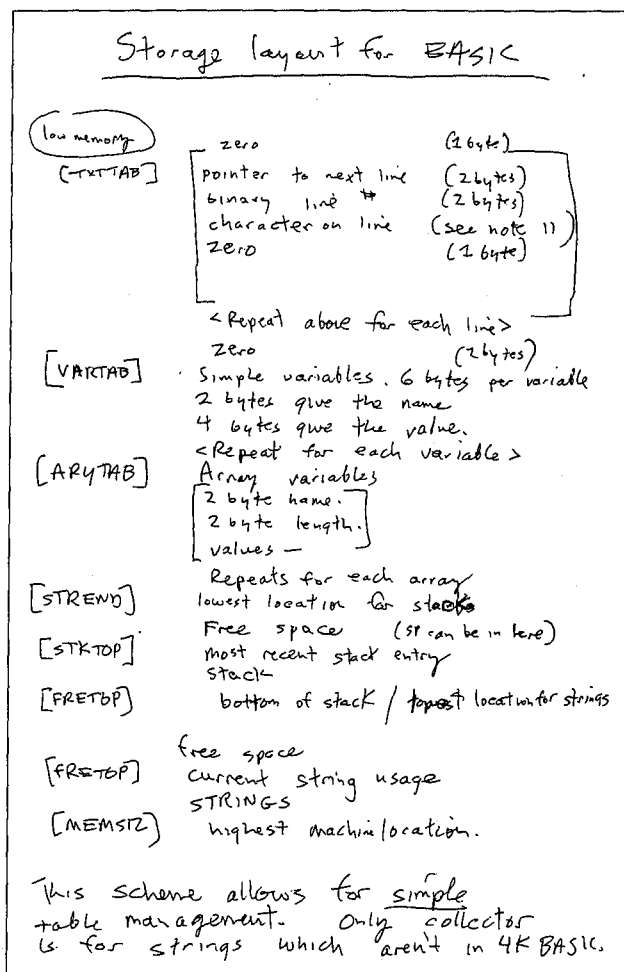 Storage layout for BASIC
low memory
zero (1 byte)
[TXTTAB]
pointer to next line (2 bytes)
binary line # (2 bytes)
character on line (see note 11)
zero (1 byte)
<Repeat above for each line>
zero (2 bytes)
[VARTAB] Simple variables. 6 bytes per variable
2 bytes give the name
4 bytes give the value.
<Repeat for each variable>
[ARYTAB] Array variables
2 byte name.
2 byte length.
values —
Repeats for each array
[STREND] lowest location for stack
Free space (SP can be in here)
[STKTOP] most recent stack entry
stack
[FRETOP] bottom of stack / location for strings
free space
[FRETOP] current string usage
STRINGS
[MEMSIZ] highest machine location.
This scheme allows for simple
table management. Only collector
is for strings which aren't in 4K BASIC.